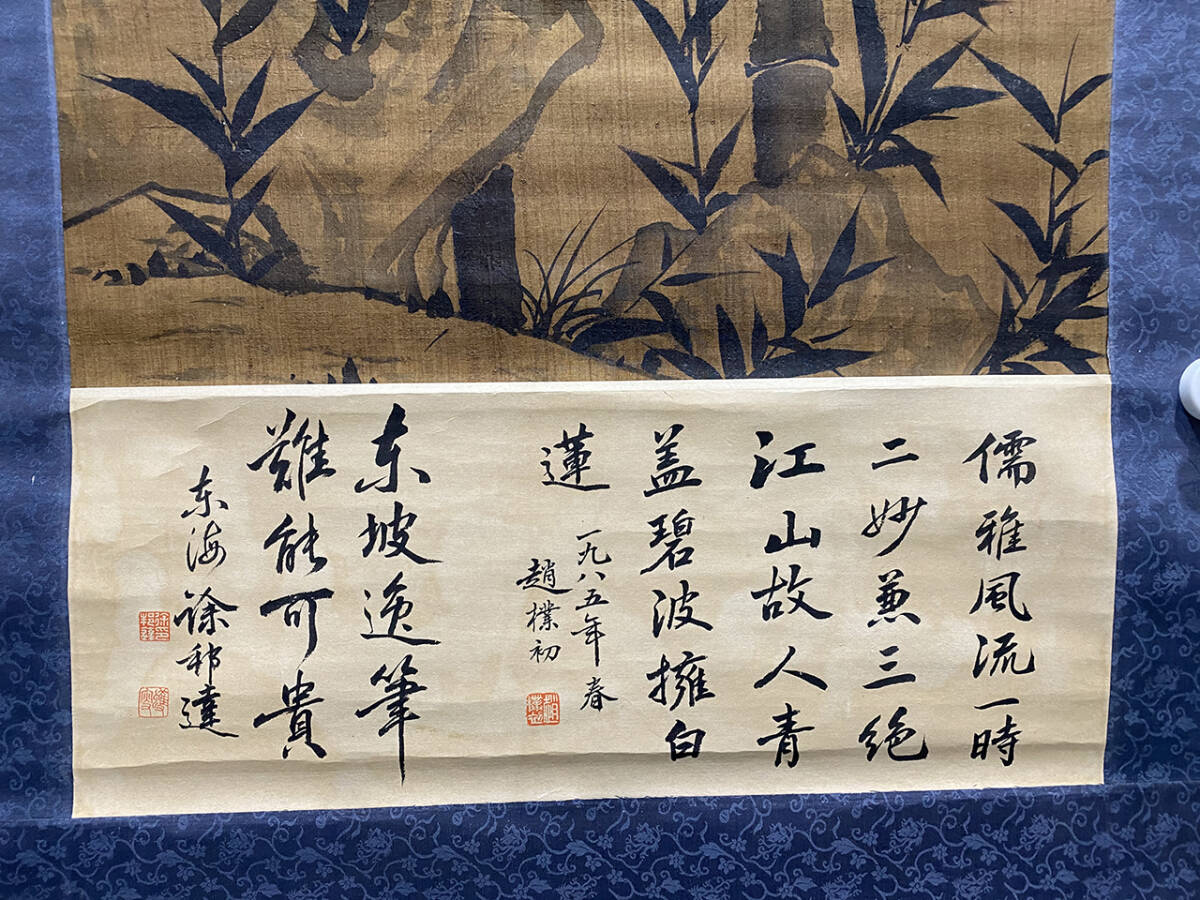 儒雅風流一時
二妙兼三绝
江山故人青
盖碧波擁白
蓮
一九八五年春
趙樸初
东坡逸筆
難能可貴
东海徐邦達